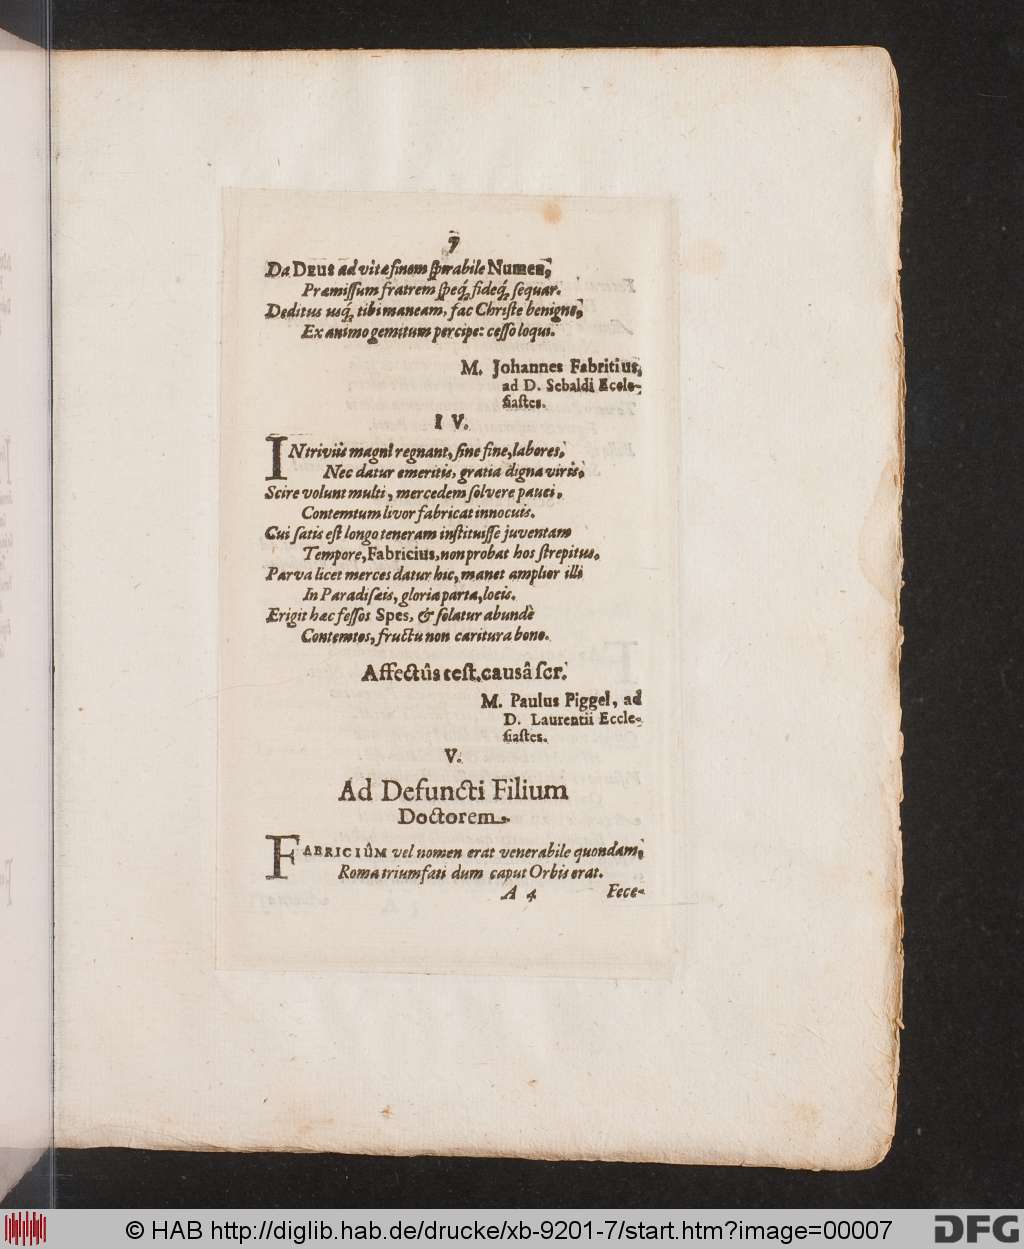 7
Da DEUS ad vitæ finem spirabile Numen,
Præmissum fratrem speq́; fideq́; sequar.
Deditus usq́; tibi maneam, fac Christe benigne,
Ex animo gemitum percipe: cesso loqui.
M. Johannes Fabritius,
ad D. Sebaldi Eccle-
siastes.
IV.
INtriviis magni regnant, sine fine, labores,
Nec datur emeritis, gratia digna viris,
Scire volunt multi, mercedem solvere pauci,
Contemtum livor fabricat innocuis.
Cui satis est longo teneram instituisse juventam
Tempore, Fabricius, non probat hos strepitus.
Parva licet merces datur hic, manet amplior illi
In Paradisæis, gloria parta, locis.
Erigit hæc fessos Spes, & solatur abundè
Contemtos, fructu non caritura bono.
Affectûs test. causâ scr.
M. Paulus Piggel, ad
D. Laurentii Eccle-
siastes.
V.
Ad Defuncti Filium
Doctorem.
FABRICIÛM vel nomen erat venerabile quondam,
Roma triumfati dum caput Orbis erat.
A 4 Fece-
© HAB http://diglib.hab.de/drucke/xb-9201-7/start.htm?image=00007
DFG